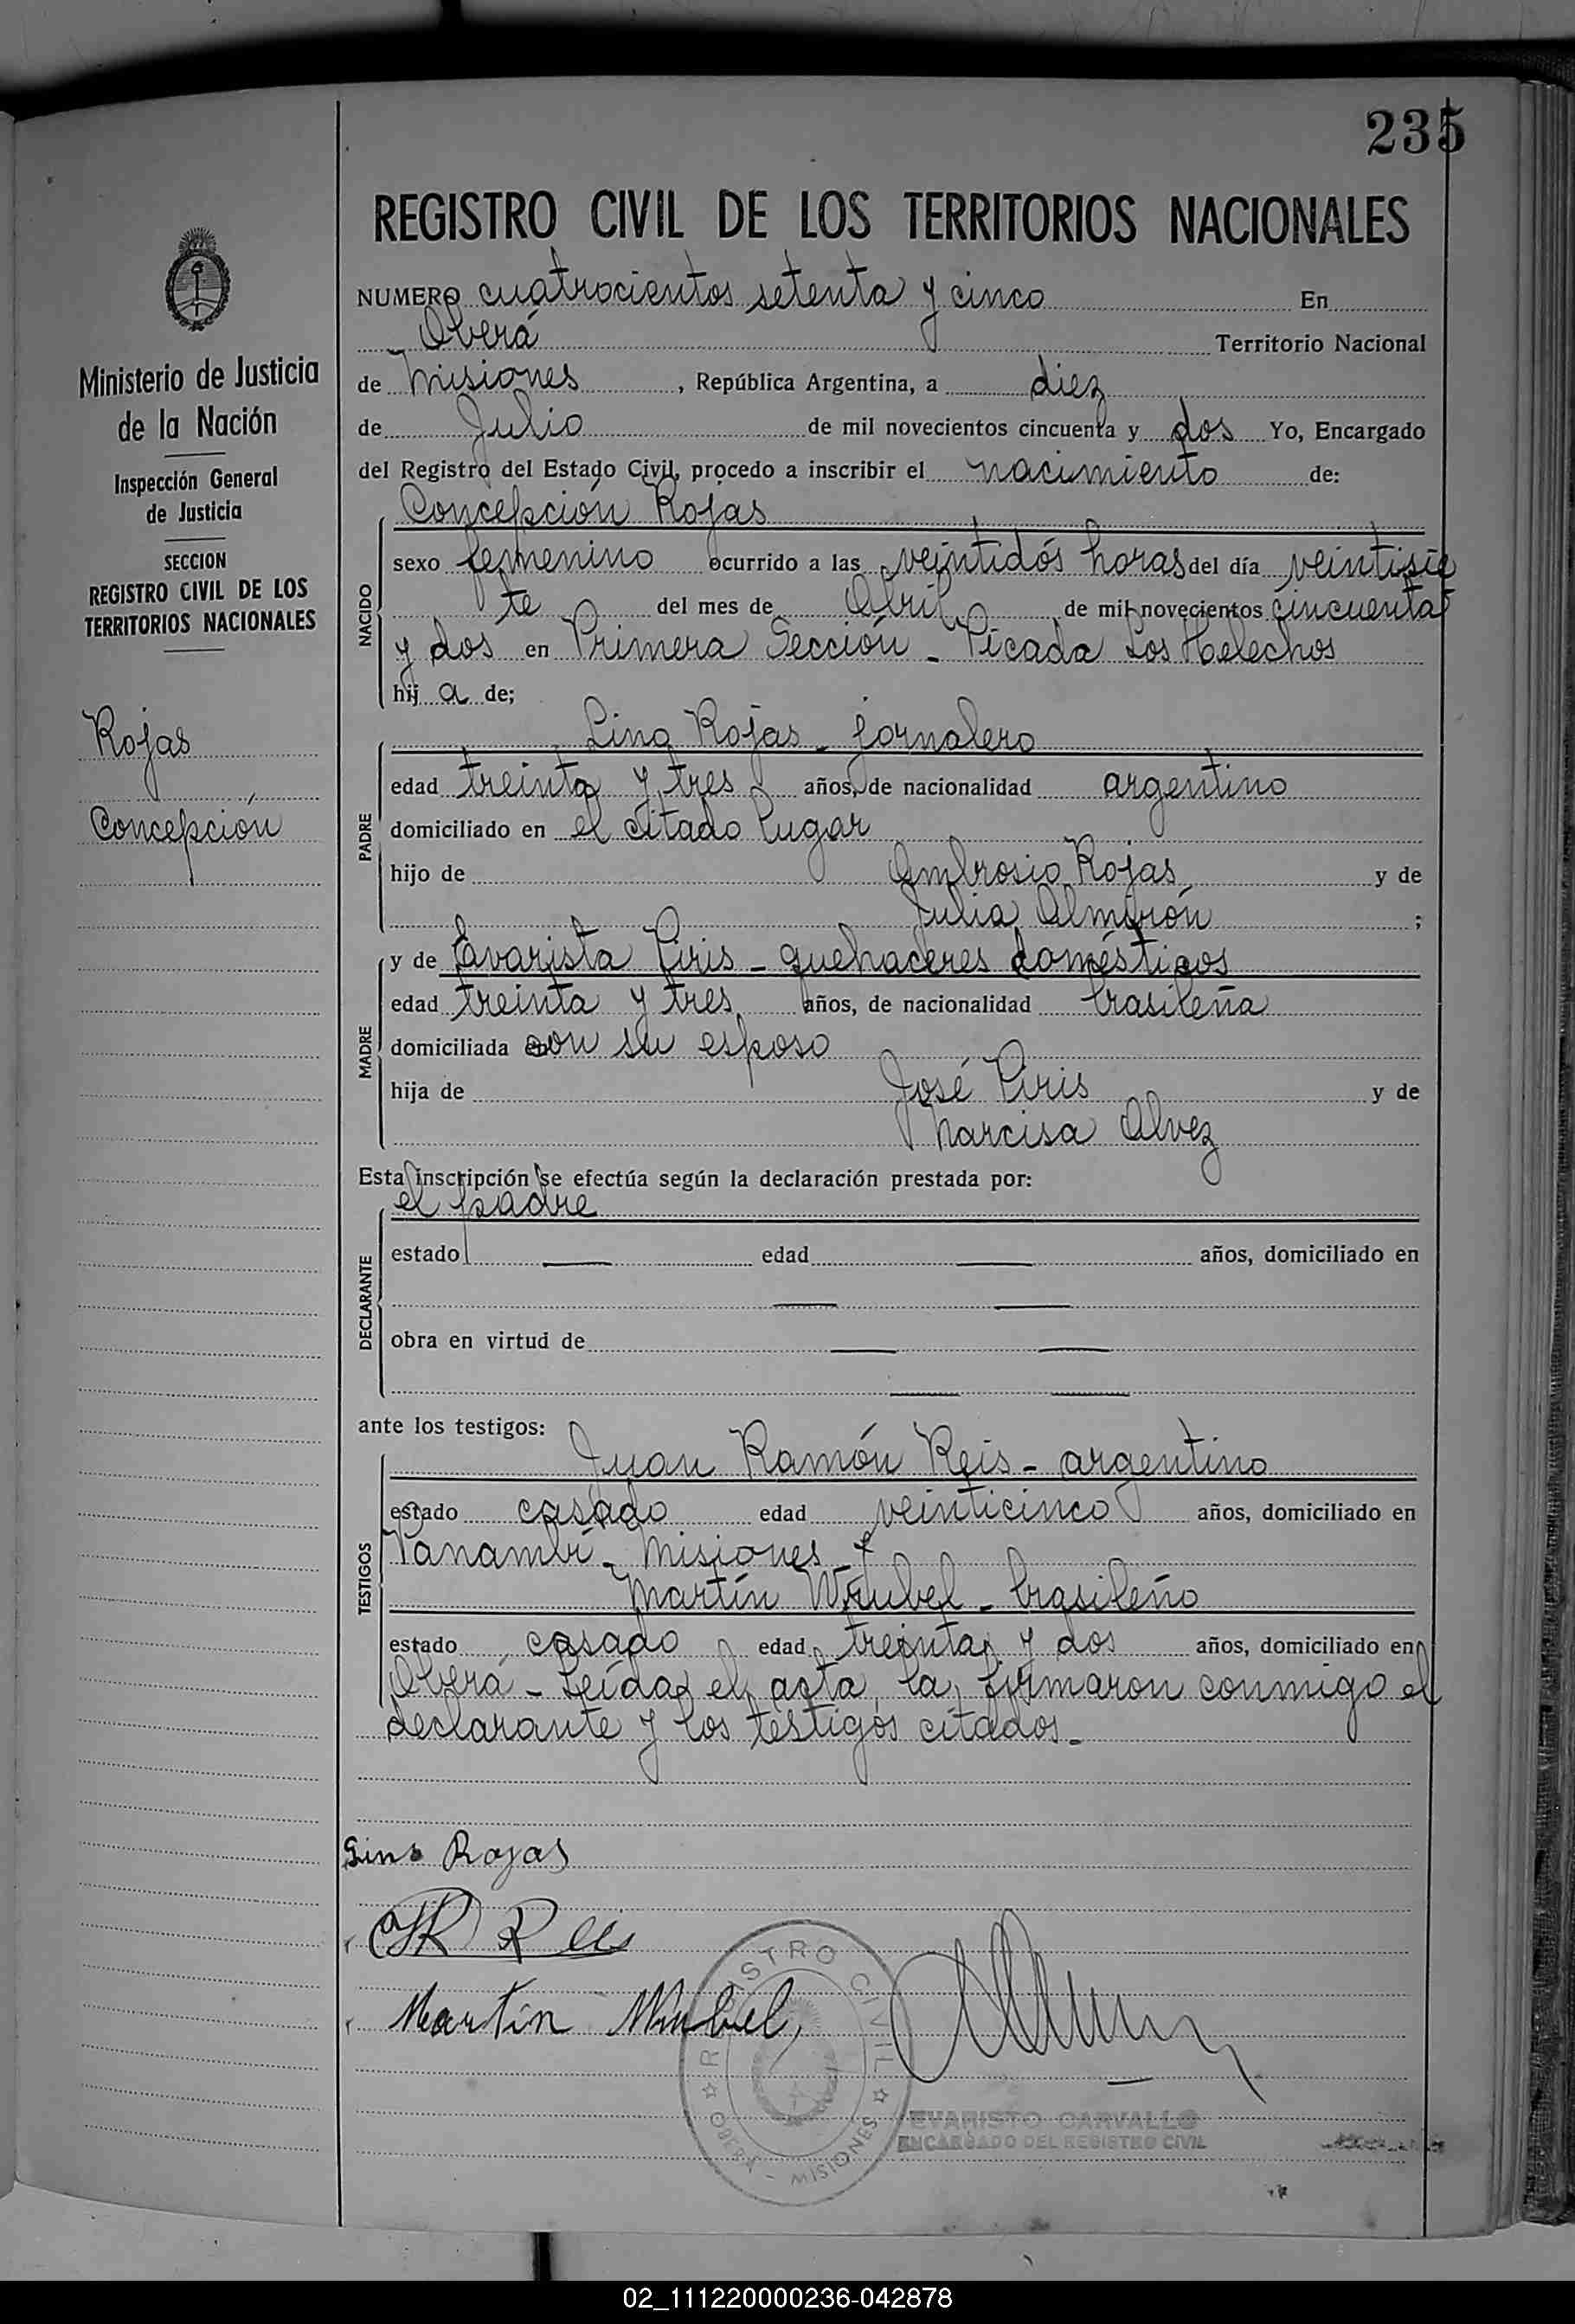 235
REGISTRO CIVIL DE LOS TERRITORIOS NACIONALES
NUMERO cuatrocientos setenta y cinco En
Oberá Territorio Nacional
de Misiones, República Argentina, a diez
de Julio de mil novecientos cincuenta y dos Yo, Encargado
del Registro del Estado Civil, procedo a inscribir el nacimiento de:
Concepción Rojas
NACIDO
sexo femenino ocurrido a las veintidós horas del día veintisie
te del mes de Abril de mil novecientos cincuenta
y dos en Primera Sección - Picada Los Helechos
hij a de;
PADRE
Lino Rojas - jornalero
edad treinta y tres años, de nacionalidad argentino
domiciliado en el citado lugar
hijo de Ambrosio Rojas y de
Julia Almirón ;
MADRE
y de Evarista Piris - quehaceres domésticos
edad treinta y tres años, de nacionalidad brasileña
domiciliada con su esposo
hija de José Piris y de
Narcisa Alvez
Esta inscripción se efectúa según la declaración prestada por:
DECLARANTE
el padre
estado — edad — años, domiciliado en
— —
obra en virtud de — —
— —
ante los testigos:
TESTIGOS
Juan Ramón Reis - argentino
estado casado edad veinticinco años, domiciliado en
Panambí - Misiones - y
Martín Wrubel - brasileño
estado casado edad treinta y dos años, domiciliado en
Oberá - Leída el acta, la firmaron conmigo el
declarante y los testigos citados.-
Lino Rojas
JR Reis
Martín Wrubel
REGISTRO CIVIL
OBERA - MISIONES
EVARISTO CARVALLO
ENCARGADO DEL REGISTRO CIVIL
Ministerio de Justicia
de la Nación
Inspección General
de Justicia
SECCION
REGISTRO CIVIL DE LOS
TERRITORIOS NACIONALES
Rojas
Concepción
02_111220000236-042878